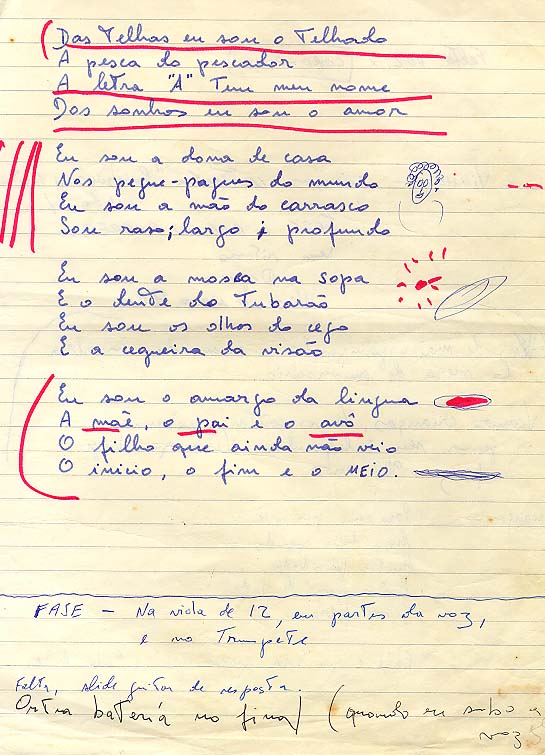 Das Telhas eu sou o Telhado
A pesca do pescador
A letra "A" Tem meu nome
Dos sonhos eu sou o amor
Eu sou a dona de casa
Nos pegue-pagues do mundo
Eu sou a mão do carrasco
Sou raso; largo; profundo
Eu sou a mosca na sopa
E o dente do Tubarão
Eu sou os olhos do cego
E a cegueira da visão
Eu sou o amargo da lingua
A mãe, o pai e o avô
O filho que ainda não veio
O inicio, o fim e o MEIO.
FASE - Na viola de 12, em partes da voz,
e no Trumpete
Falta, slide guitar de resposta.
Outra bateria no final (quando eu subo a
voz